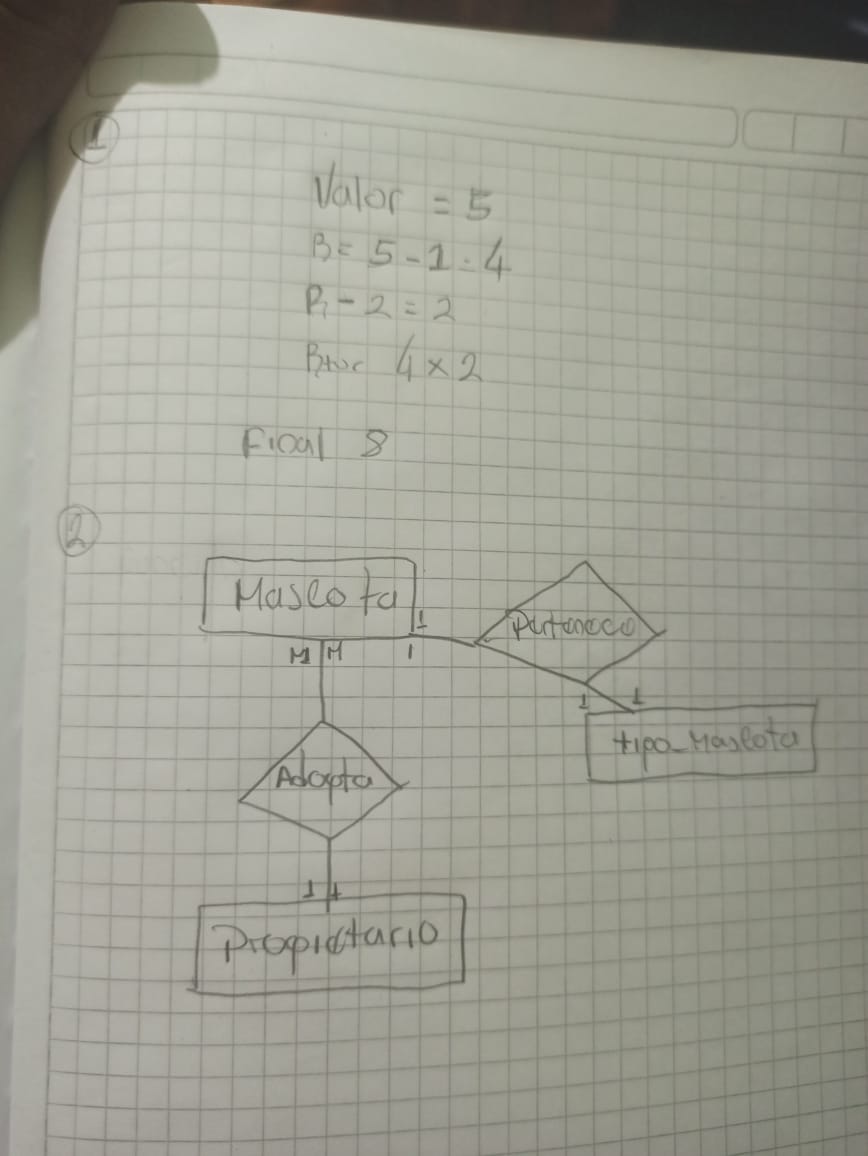 1
Valor = 5
B = 5 - 1 = 4
- 2 = 2
4 x 2
Final 8
2
Mascota
1
Pertenece
M M 1
1 1
tipo_Mascota
Adopta
1 1
Propietario